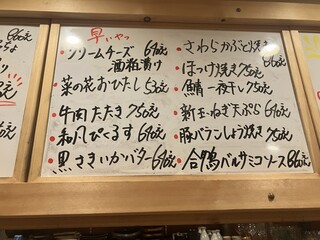 早いやつ
・クリームチーズ 酒粕漬け 690え
・菜の花おひたし 530え
・牛肉たたき 750え
・和風ぴくるす 690え
・黒さきいかバター 690え
・さわらかぶと焼き 860え
・ほっけ焼き 750え
・鯖一夜干し 750え
・新玉ねぎ天ぷら 690え
・豚バラしょう焼き 750え
・合鴨バルサミコソース 860え